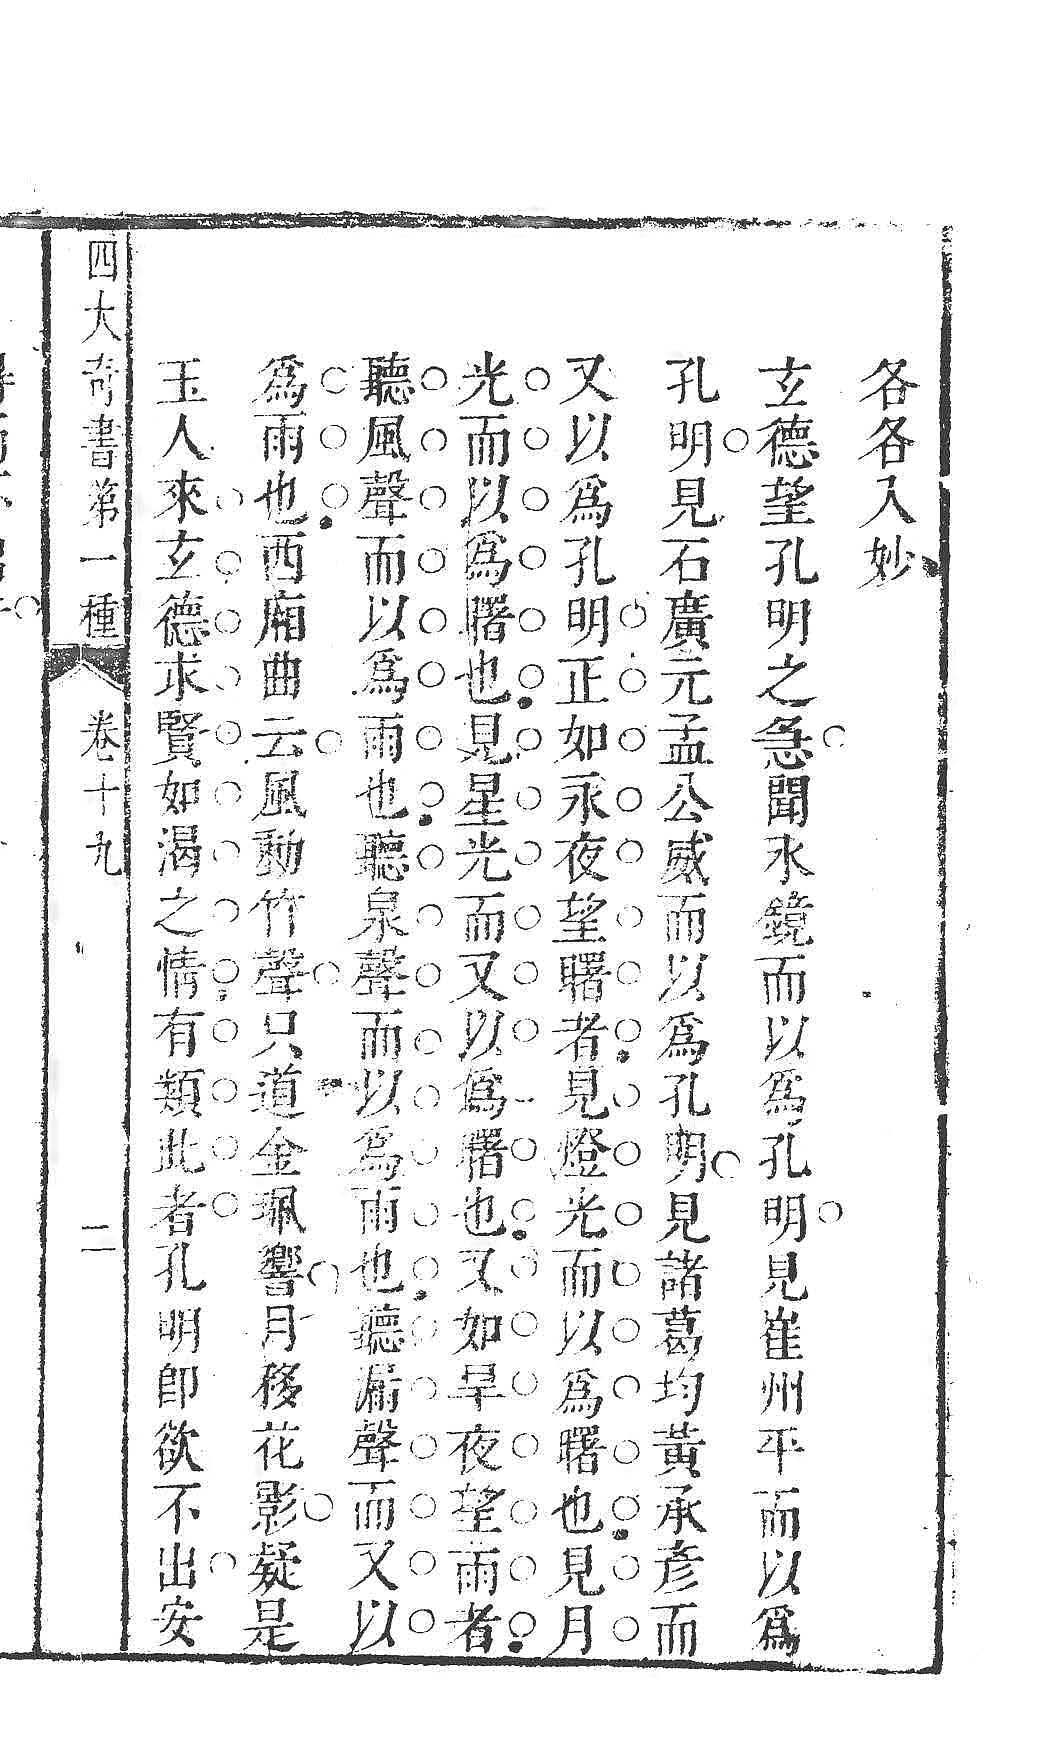 各各入妙
玄德望孔明之急聞水鏡而以爲孔明見崔州平而以爲
孔明見石廣元孟公威而以爲孔明見諸葛均黃承彥而
又以爲孔明正如永夜望曙者見燈光而以爲曙也見月
光而以爲曙也見星光而又以爲曙也又如旱夜望雨者
聽風聲而以爲雨也聽泉聲而以爲雨也聽漏聲而又以
爲雨也西廂曲云風動竹聲只道金珮響月移花影疑是
玉人來玄德求賢如渴之情有類此者孔明卽欲不出安
四大奇書第一種 卷十九 二